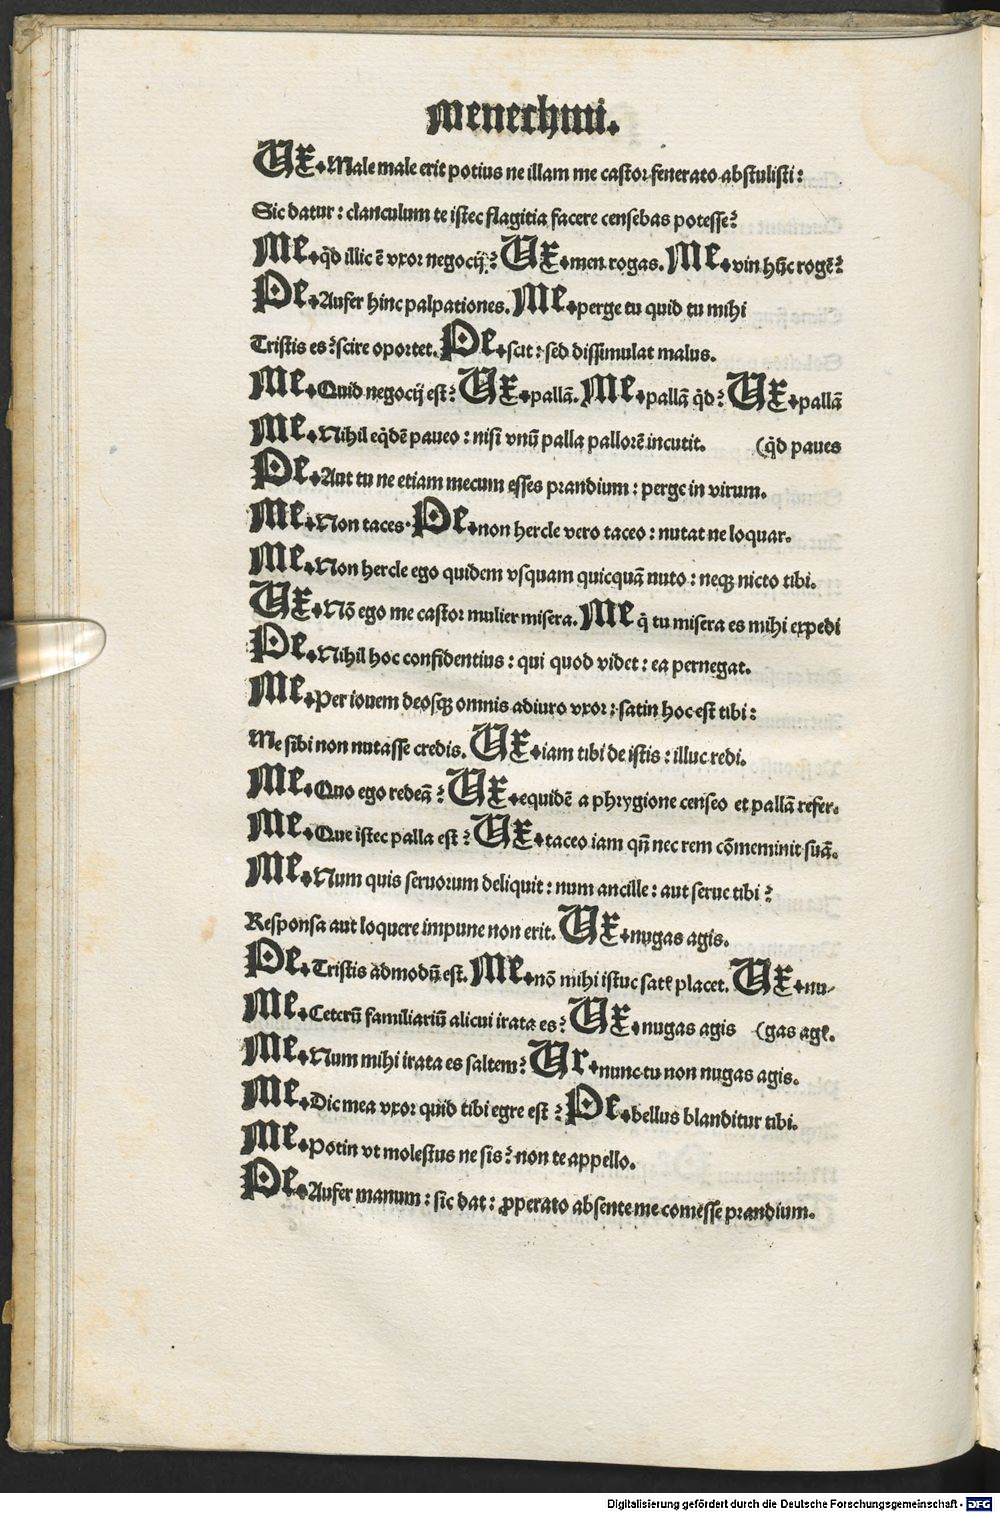 Menechmi.
Ux. Male male erit potius ne illam me castor fenerato abstulisti:
Sic datur: clanculum te istec flagitia facere censebas potesse?
Me. qd illic ē vxor negocij? Ux. men rogas. Me. vin hūc rogē?
Pe. Aufer hinc palpationes. Me. perge tu quid tu mihi
Tristis es? scire oportet. Pe. scit: sed dissimulat malus.
Me. Quid negocij est? Ux. pallā. Me. pallā qd? Ux. pallā
Me. Nihil eqdē paueo: nisi vnū palla pallorē incutit. (qd paues
Pe. Aut tu ne etiam mecum esses prandium: perge in virum.
Me. Non taces. Pe. non hercle vero taceo: nutat ne loquar.
Me. Non hercle ego quidem vsquam quicquā nuto: neqꝫ nicto tibi.
Ux. Nō ego me castor mulier misera. Me q̄ tu misera es mihi expedi
Pe. Nihil hoc confidentius: qui quod videt: ea pernegat.
Me. Per iouem deosqꝫ omnis adiuro vxor: satin hoc est tibi:
Me sibi non nutasse credis. Ux. iam tibi de istis: illuc redi.
Me. Quo ego redeā? Ux. equidē a phrygione censeo et pallā refer.
Me. Que istec palla est? Ux. taceo iam qn̄ nec rem cōmeminit suā.
Me. Num quis seruorum deliquit: num ancille: aut serue tibi?
Responsa aut loquere impune non erit. Ux. nugas agis.
Pe. Tristis admodū est. Me. nō mihi istuc satꝭ placet. Ux. nu-
Me. Ceterū familiariū alicui irata es? Ux. nugas agis (gas agꝭ.
Me. Num mihi irata es saltem? Ur. nunc tu non nugas agis.
Me. Dic mea vxor quid tibi egre est? Pe. bellus blanditur tibi.
Me. Potin vt molestus ne sis? non te appello.
Pe. Aufer manum: sic dat: ꝓperato absente me comesse prandium.
Digitalisierung gefördert durch die Deutsche Forschungsgemeinschaft - DFG